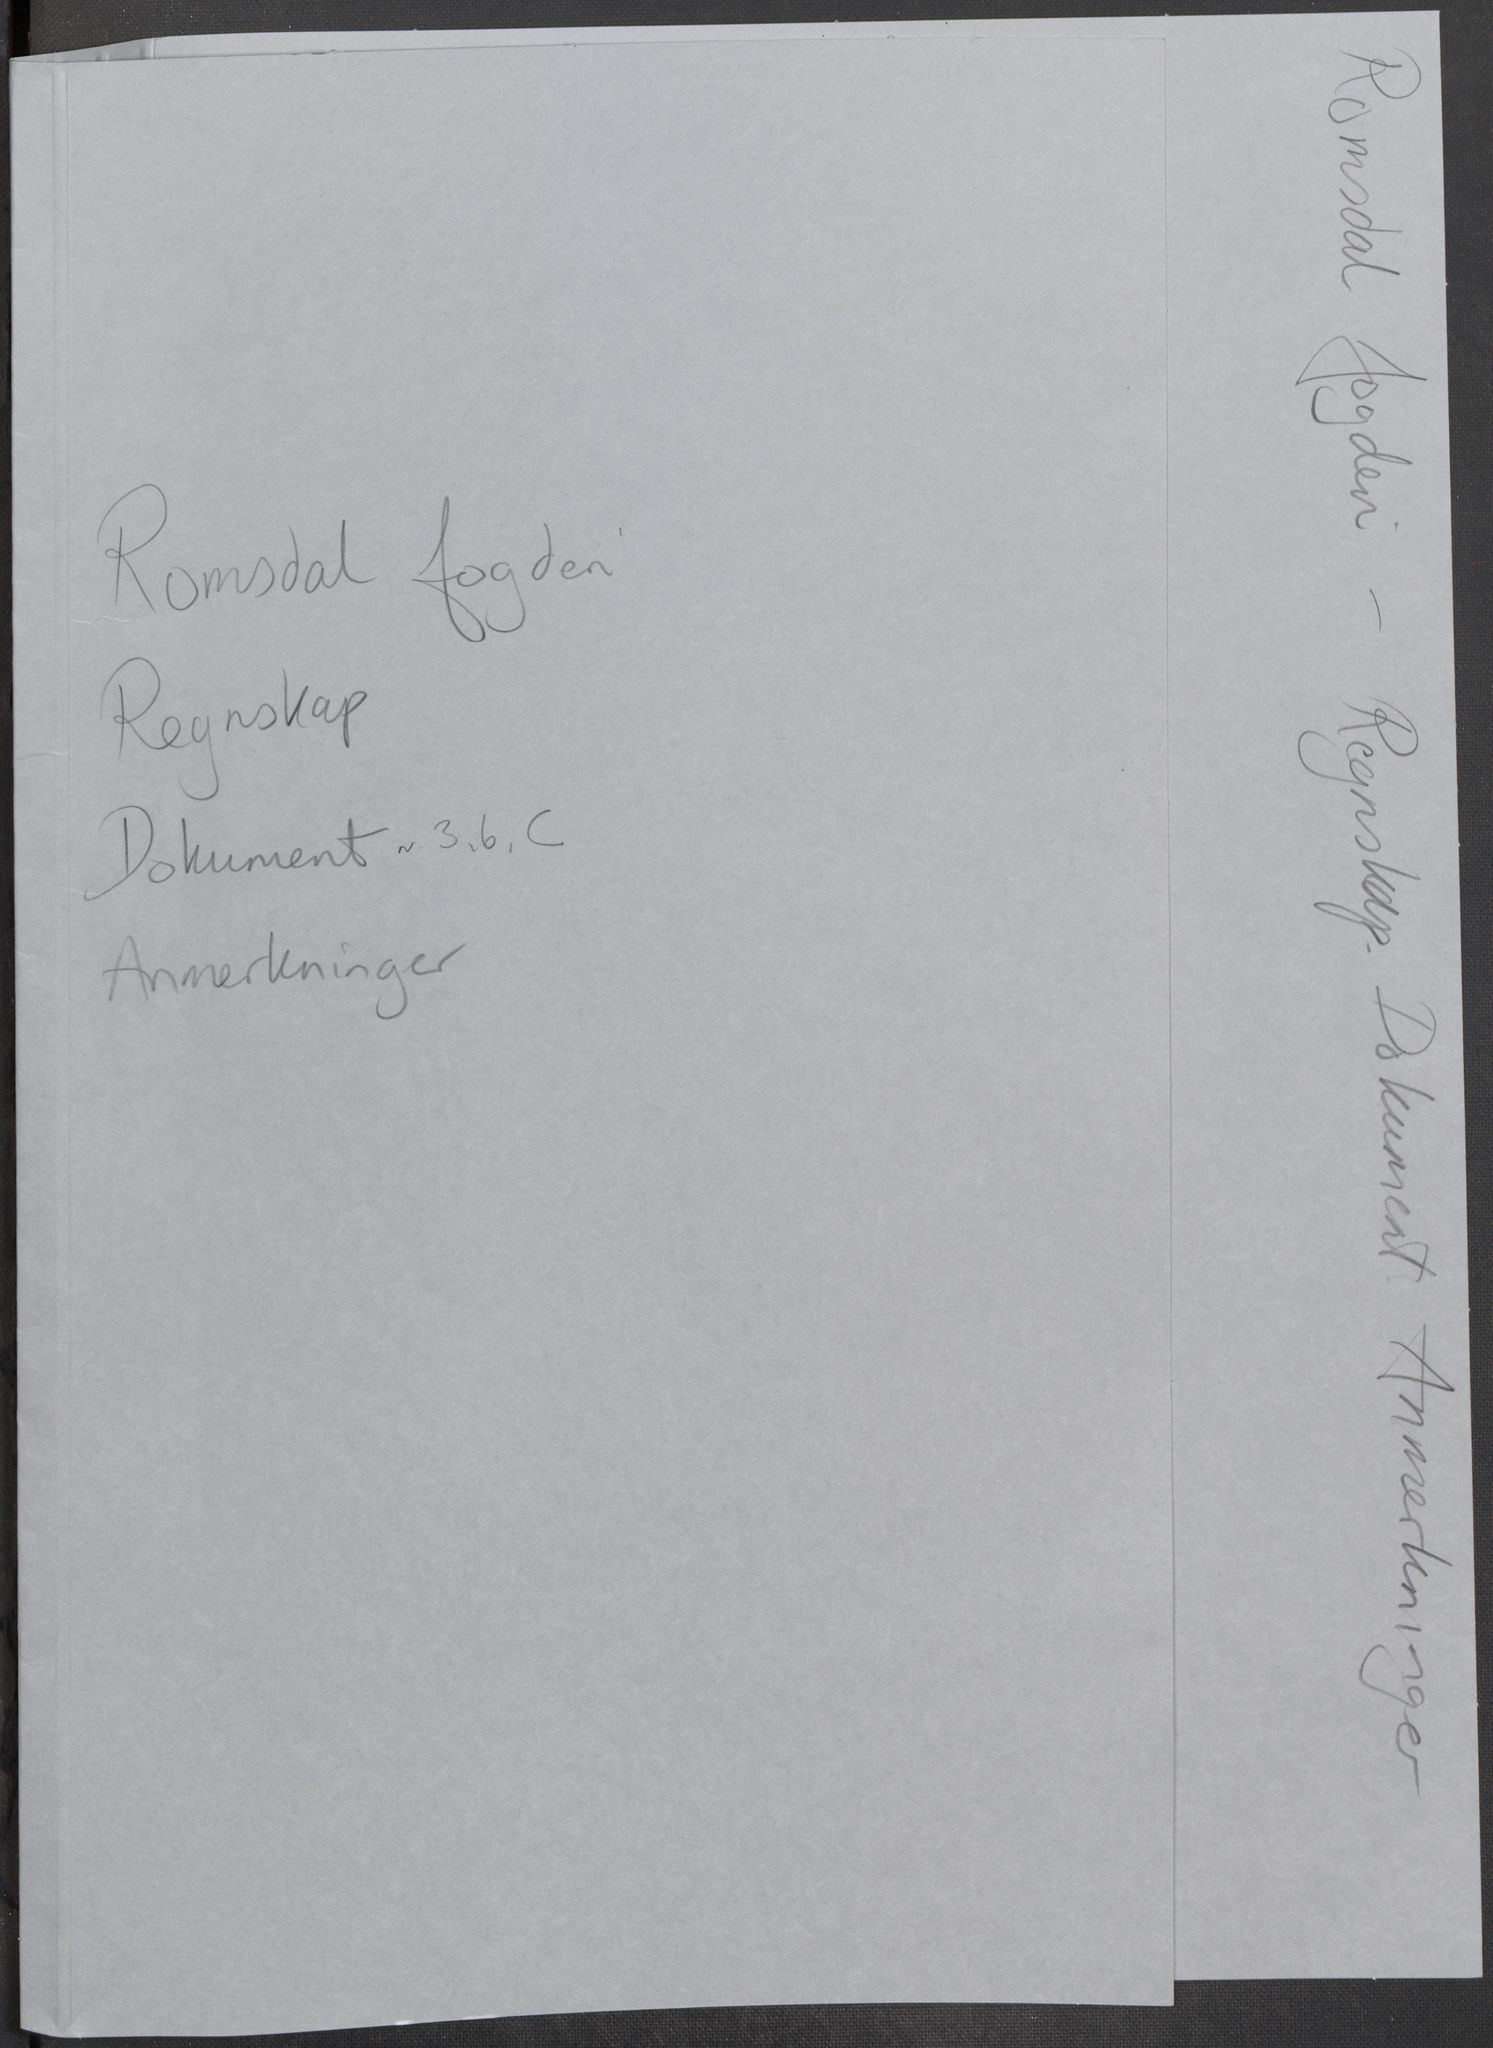 Romsdal fogderi
Regnskap
Dokument n. 3, b, C
Anmerkninger
Romsdal fogderi - Regnskap. Dokument. Anmerkninger